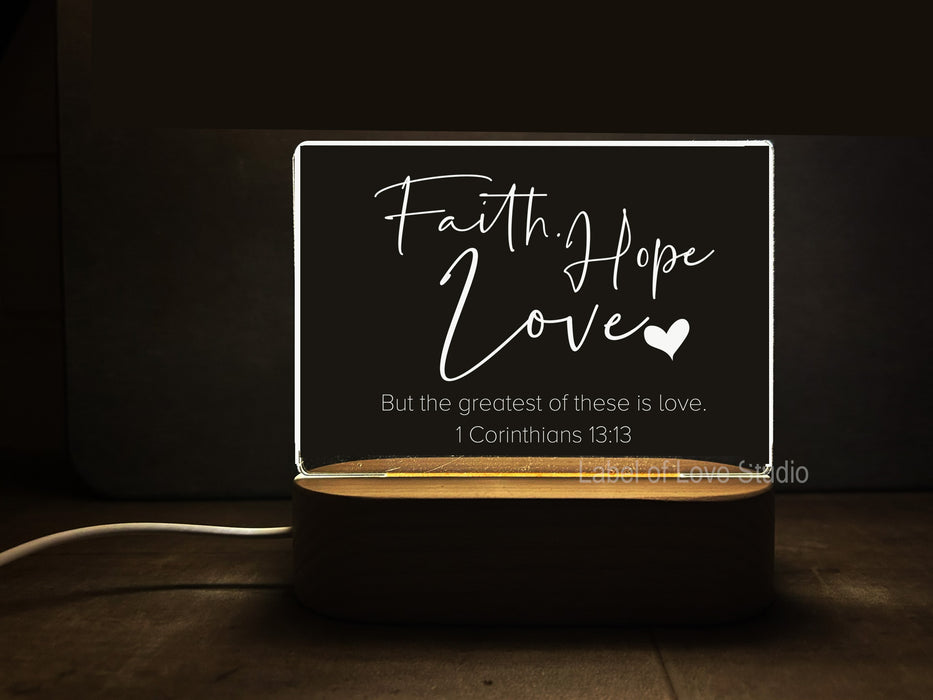 Faith. Hope
Love
But the greatest of these is love.
1 Corinthians 13:13
Label of Love Studio